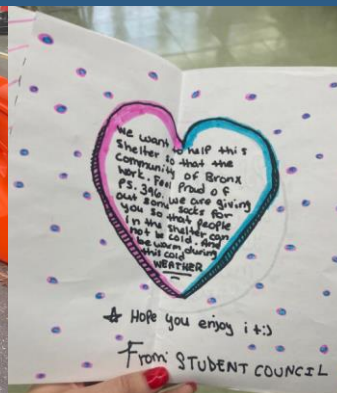 We want to help this
shelter so that the
community of Bronx
work. Feel Proud of
PS. 396. we are giving
out some socks for
you so that people
in the shelter can
not be cold. And
be warm during
this cold
WEATHER
☆ Hope you enjoy it :)
From: STUDENT COUNCIL